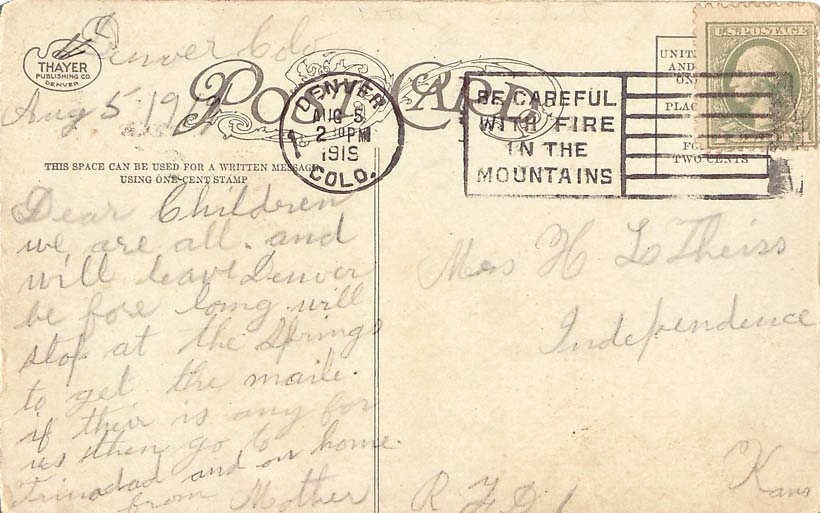 Denver Colo
THAYER
PUBLISHING CO.
DENVER
Aug 5 1919
POST CARD
DENVER
AUG 5
2 PM
1919
COLO.
BE CAREFUL
WITH FIRE
IN THE
MOUNTAINS
U.S. POSTAGE
1
UNIT
AND
PLAC
FO
TWO CENTS
THIS SPACE CAN BE USED FOR A WRITTEN MESSAGE
USING ONE CENT STAMP
Dear Children
we are all. and
will leave Denver
be fore long. will
stop at the Springs
to get the maile.
if their is any for
us then go to
Trinadad and on home.
from Mother
Mrs H L Theiss
Independence
Kans
R F D 1